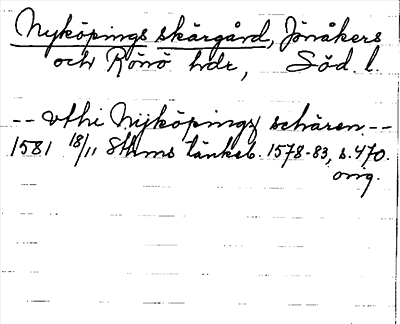 Nyköpings skärgård, Jönåkers
och Rönö hdr, Söd. l.
-- vthi Nyköpingz schären --
1581 18/11 Sthms tänkeb. 1578-83, s. 470.
orig.